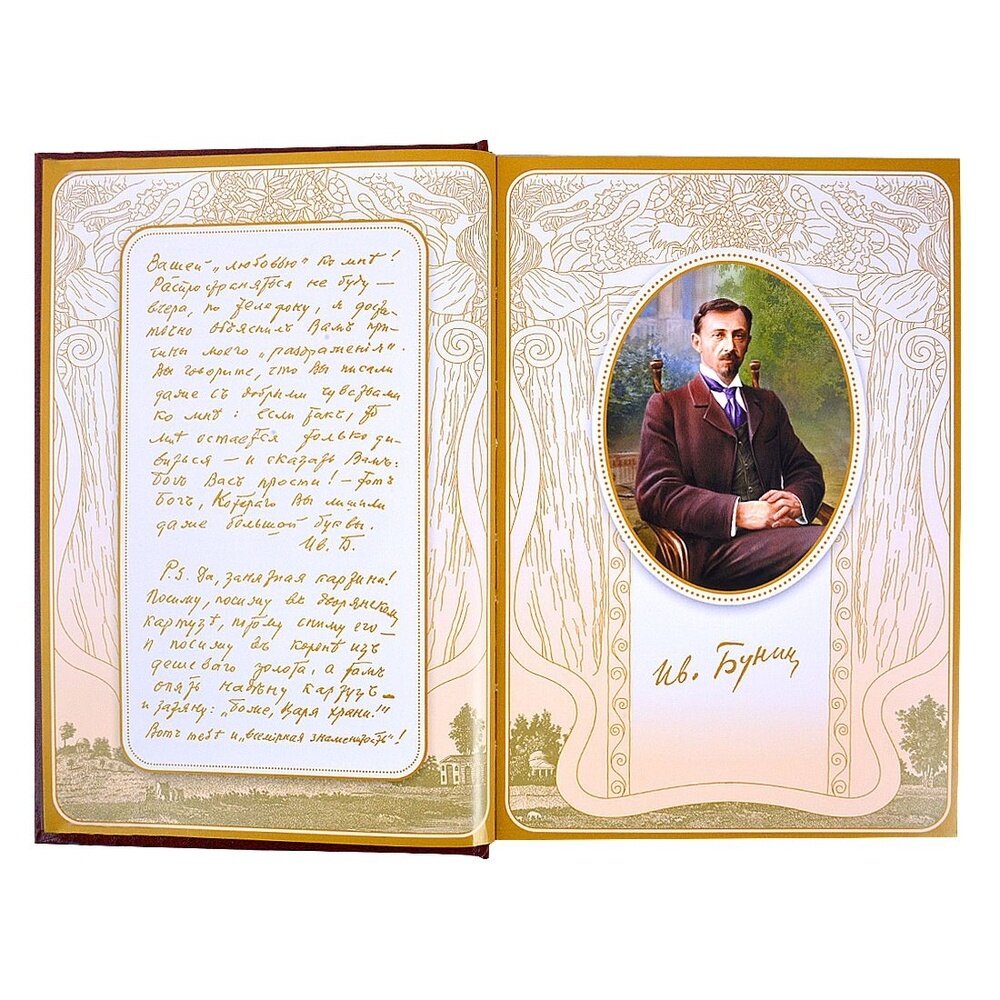 Вашей „любовью" ко мнѣ!
Распространяться не буду —
вчера, по телефону, я доста-
точно объяснилъ Вамъ при-
чины моего „раздраженія".
Вы говорите, что Вы писали
даже съ добрыми чувствами
ко мнѣ: если такъ, то
мнѣ остается только ди-
виться — и сказать Вамъ:
Богъ Васъ прости! — тотъ
Богъ, Котораго Вы лишили
даже большой буквы.
Ив. Б.
P.S. Да, занятная картина!
Посижу, посижу въ дворянском
картузѣ, потомъ сниму его —
и посижу въ коронѣ изъ
дешеваго золота, а тамъ
опять надѣну картузъ —
и затяну: „Боже, Царя храни!"
Вотъ тебѣ и „всемірная знаменитость"!
Ив. Бунин